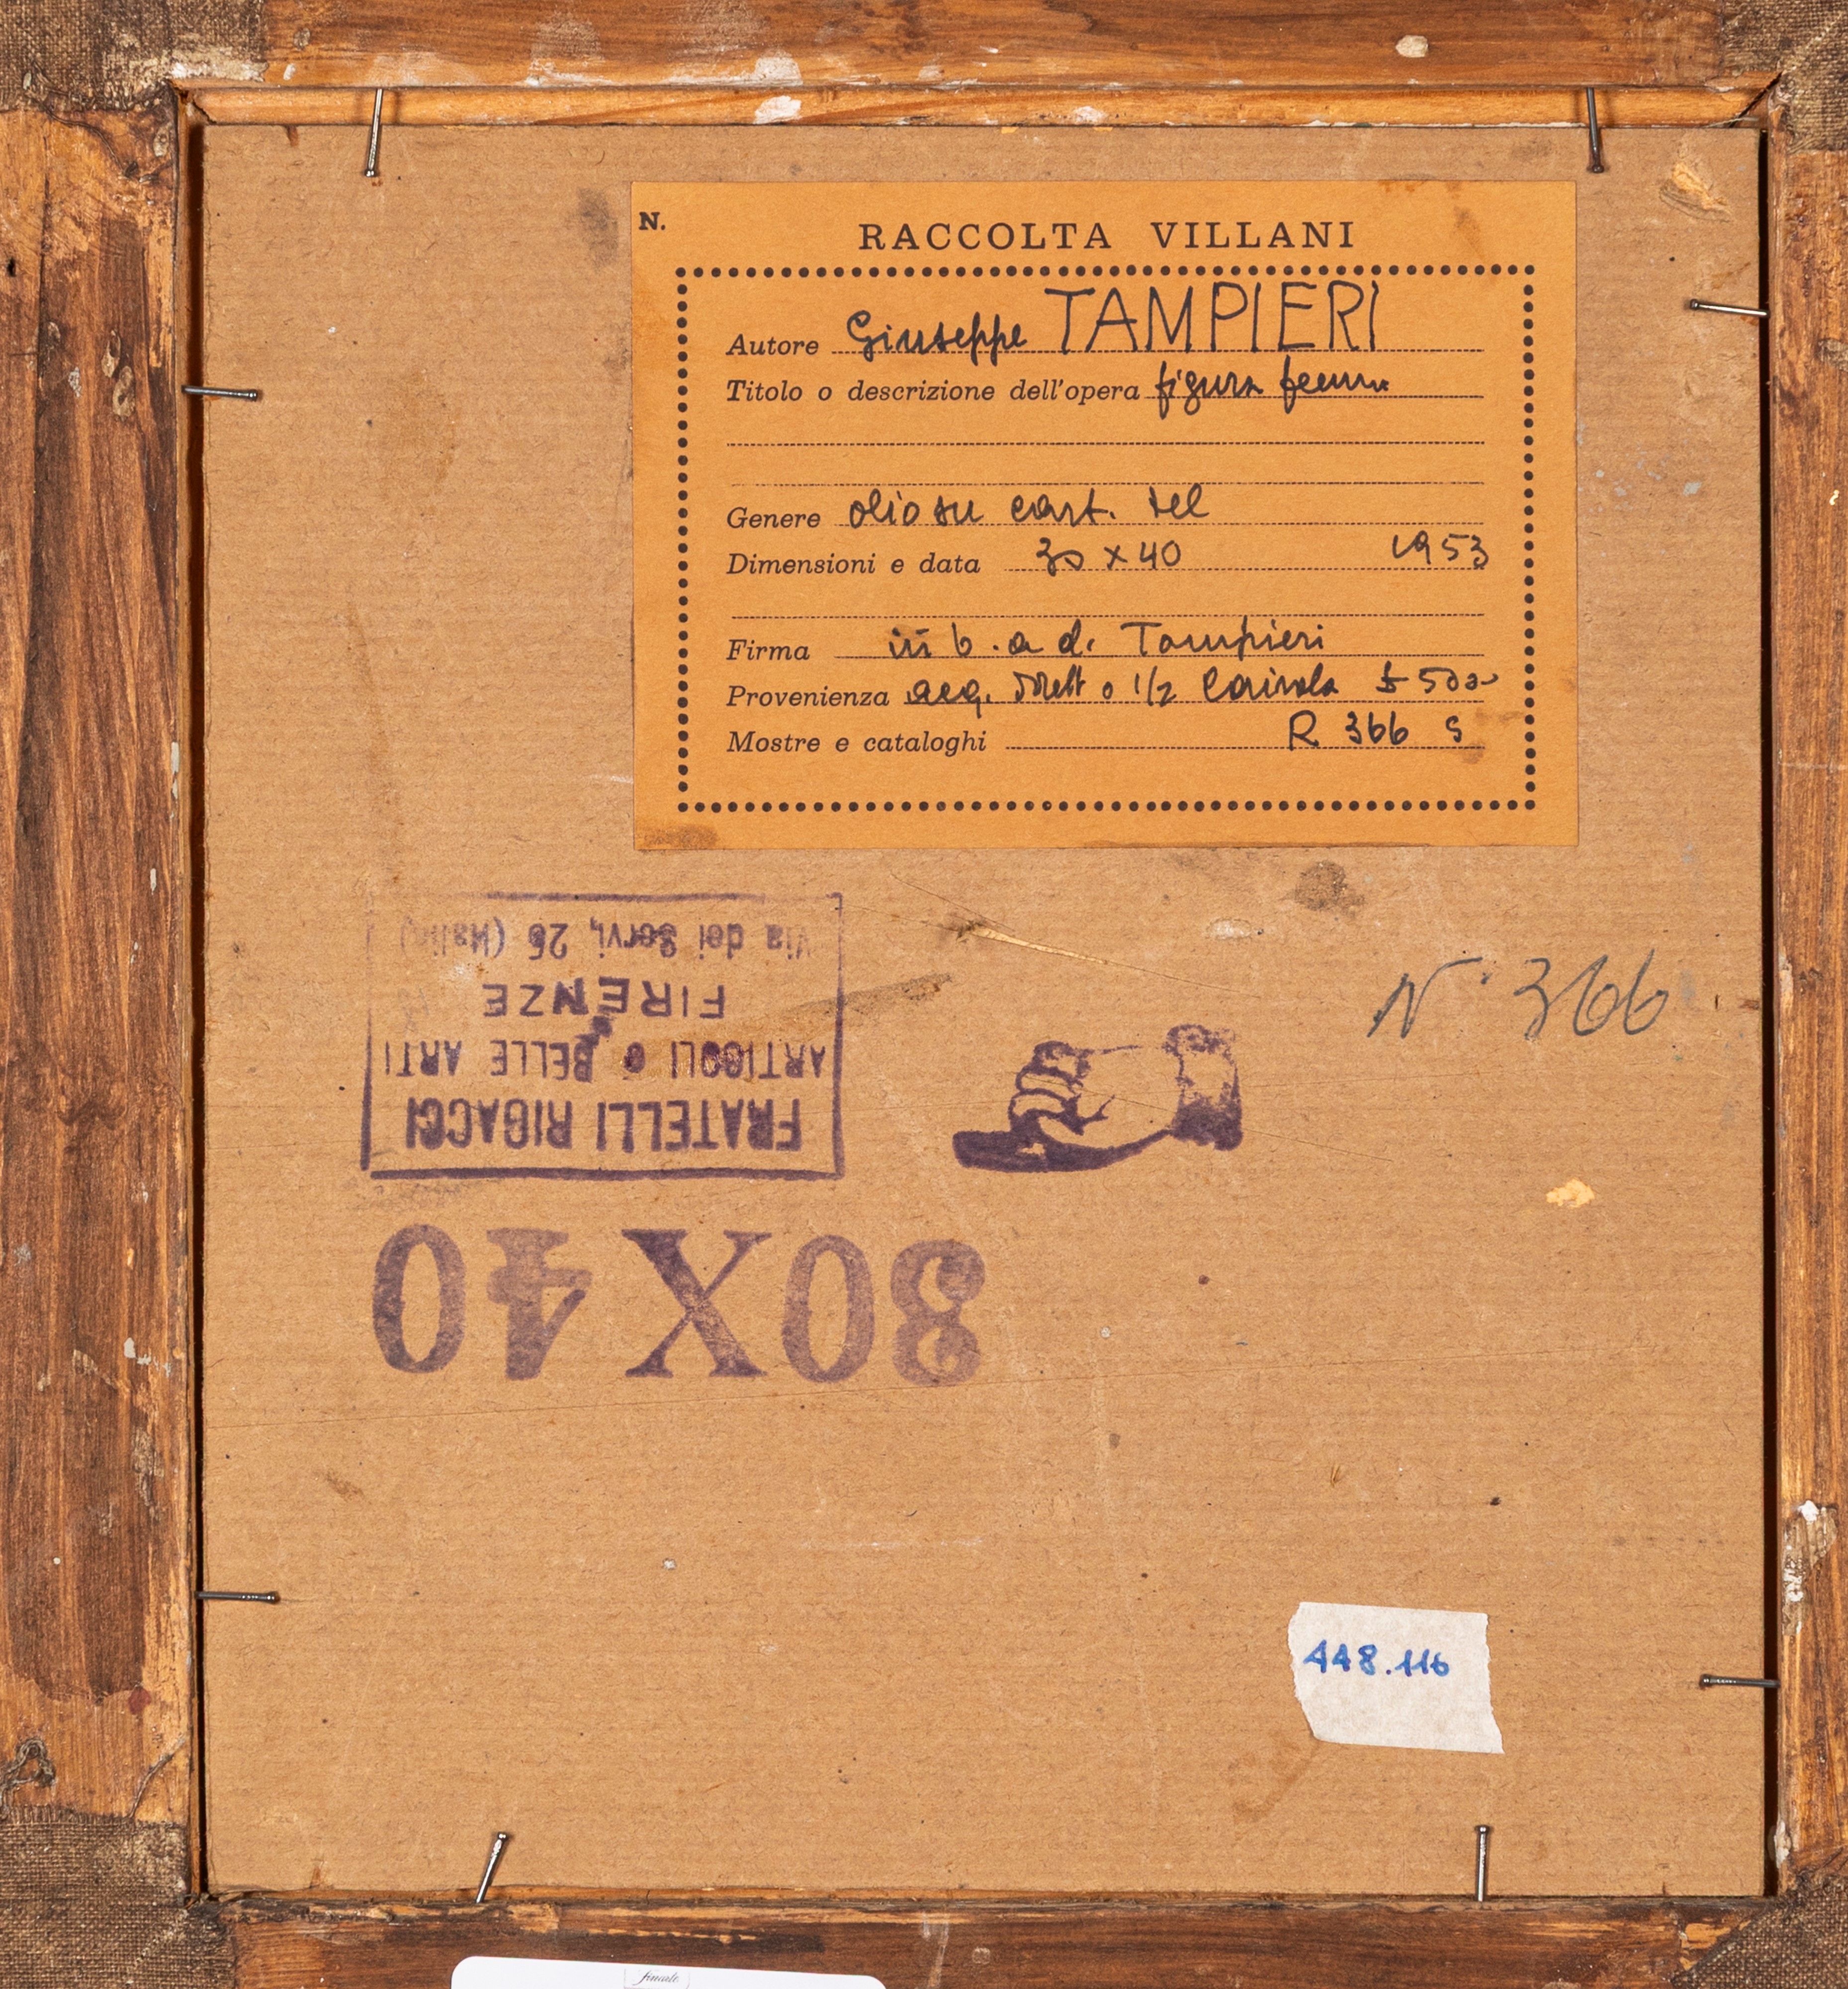 N.
RACCOLTA VILLANI
Autore Giuseppe TAMPIERI
Titolo o descrizione dell'opera figura femm
Genere olio su cart. tel
Dimensioni e data 30 x 40 1953
Firma in b. a d. Tampieri
Provenienza acq. 1/2 Cairola £ 500
Mostre e cataloghi R 366 S
N. 366
30X40
FRATELLI RIGACCI
ARTICOLI BELLE ARTI
FIRENZE
Via dei Servi, 26 (Italia)
448.116
finarte